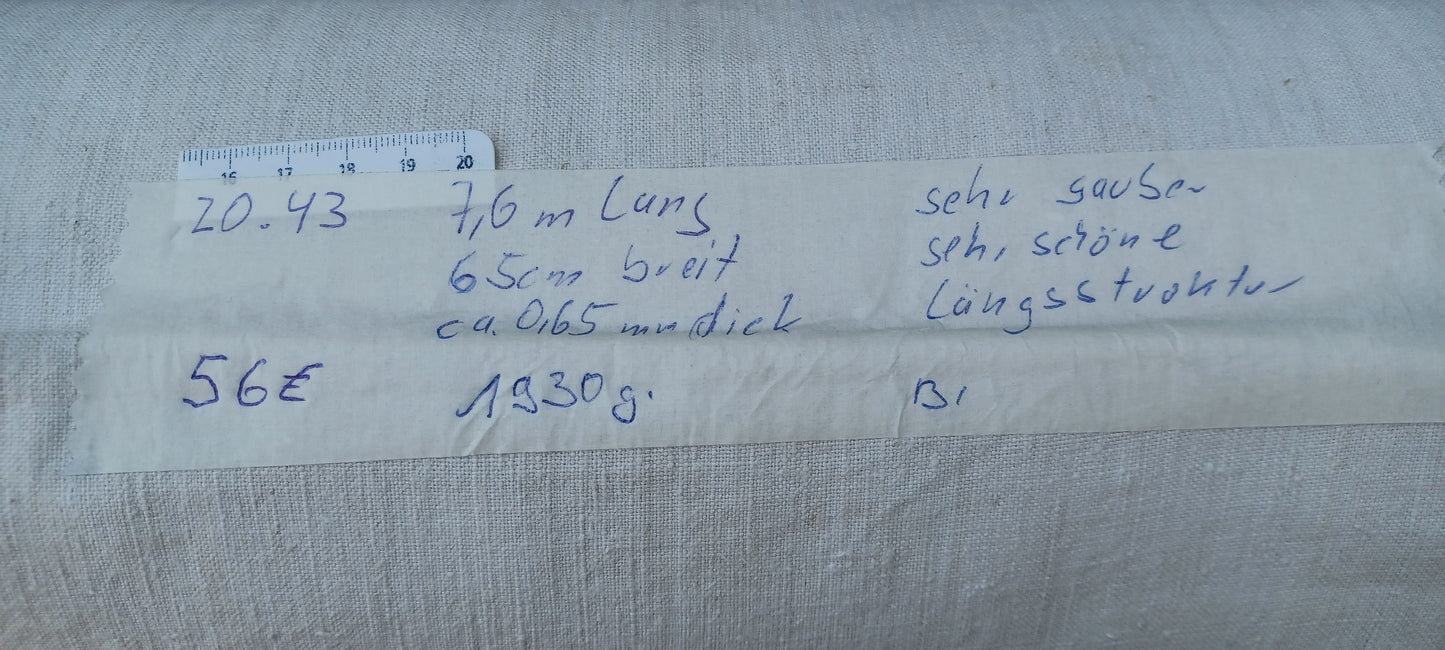 16 17 18 19 20
20.43 7,6 m lang sehr sauber
65cm breit sehr schöne
ca. 0,65 mm dick Längsstruktur
56€ 1930g. BI